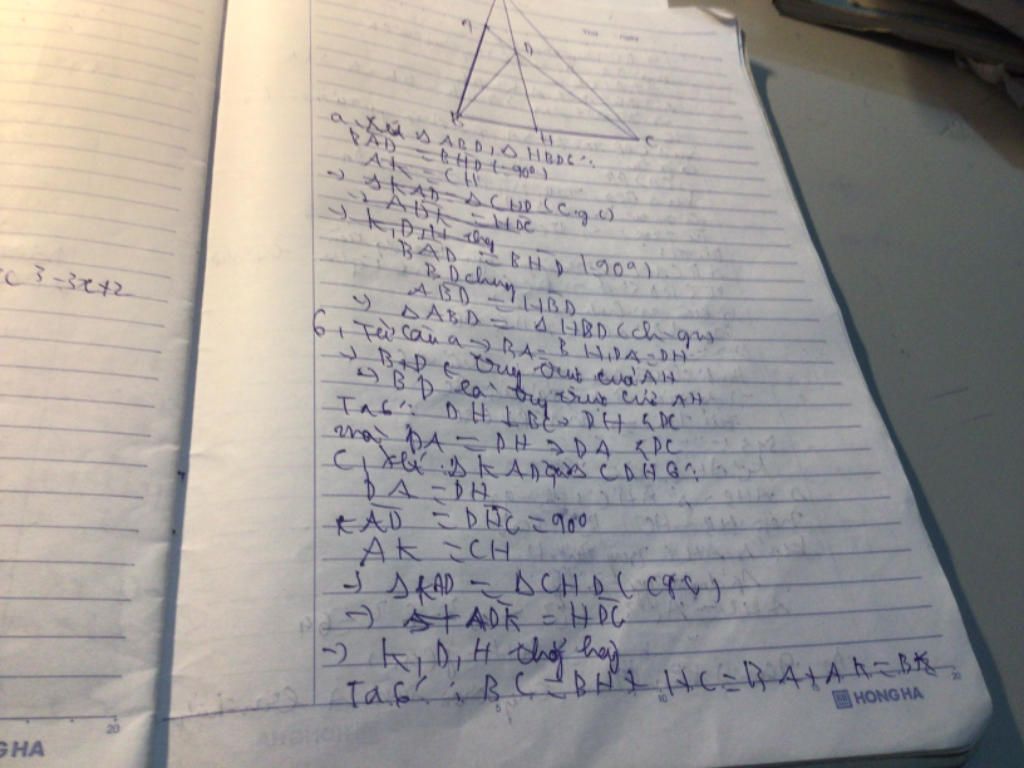 B
H
C
a, Xét △ABD, △HBD có:
BAD = BHD (=90°)
AK = CH
→ △KAD = △CHD (c.g.c)
→ ADK = HDC
→ K, D, H thẳng
BAD = BHD (90°)
BD chung
ABD = HBD
→ △ABD = △HBD (ch-gn)
b, Từ câu a → BA = BH, DA = DH
→ B, D ∈ trung trực của AH
→ BD là trung trực của AH
Ta có: DH ⊥ BC → DH < DC
mà DA = DH → DA < DC
C, Xét △KAD và △CDH có:
DA = DH
KAD = DHC = 90°
AK = CH
→ △KAD = △CHD (cgc)
→ ADK = HDC
→ K, D, H thẳng hàng
Ta có: BC = BH + HC = BA + AK = BK
x³-3x+2
20
5
10
20
HONG HA
GHA